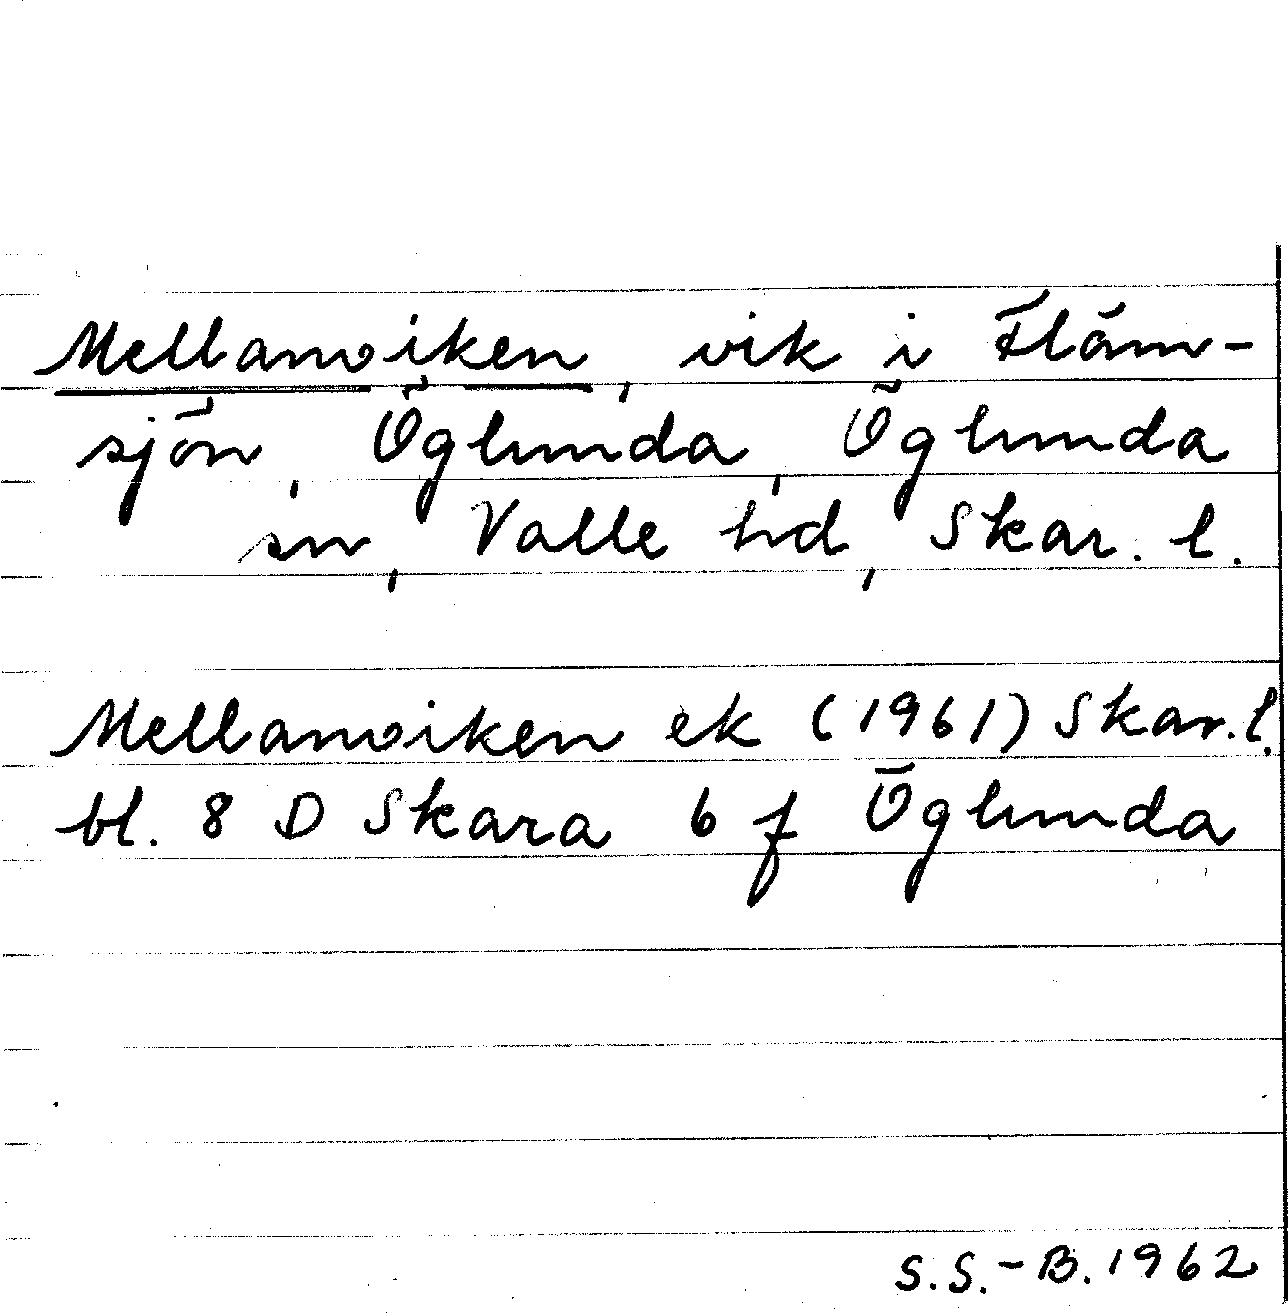 Mellanviken, vik i Fläm-
sjön, Öglunda, Öglunda
sn, Valle hd, Skar. l.
Mellanviken ek (1961) Skar. l.
bl. 8 D Skara 6 f Öglunda
S.S.-B. 1962